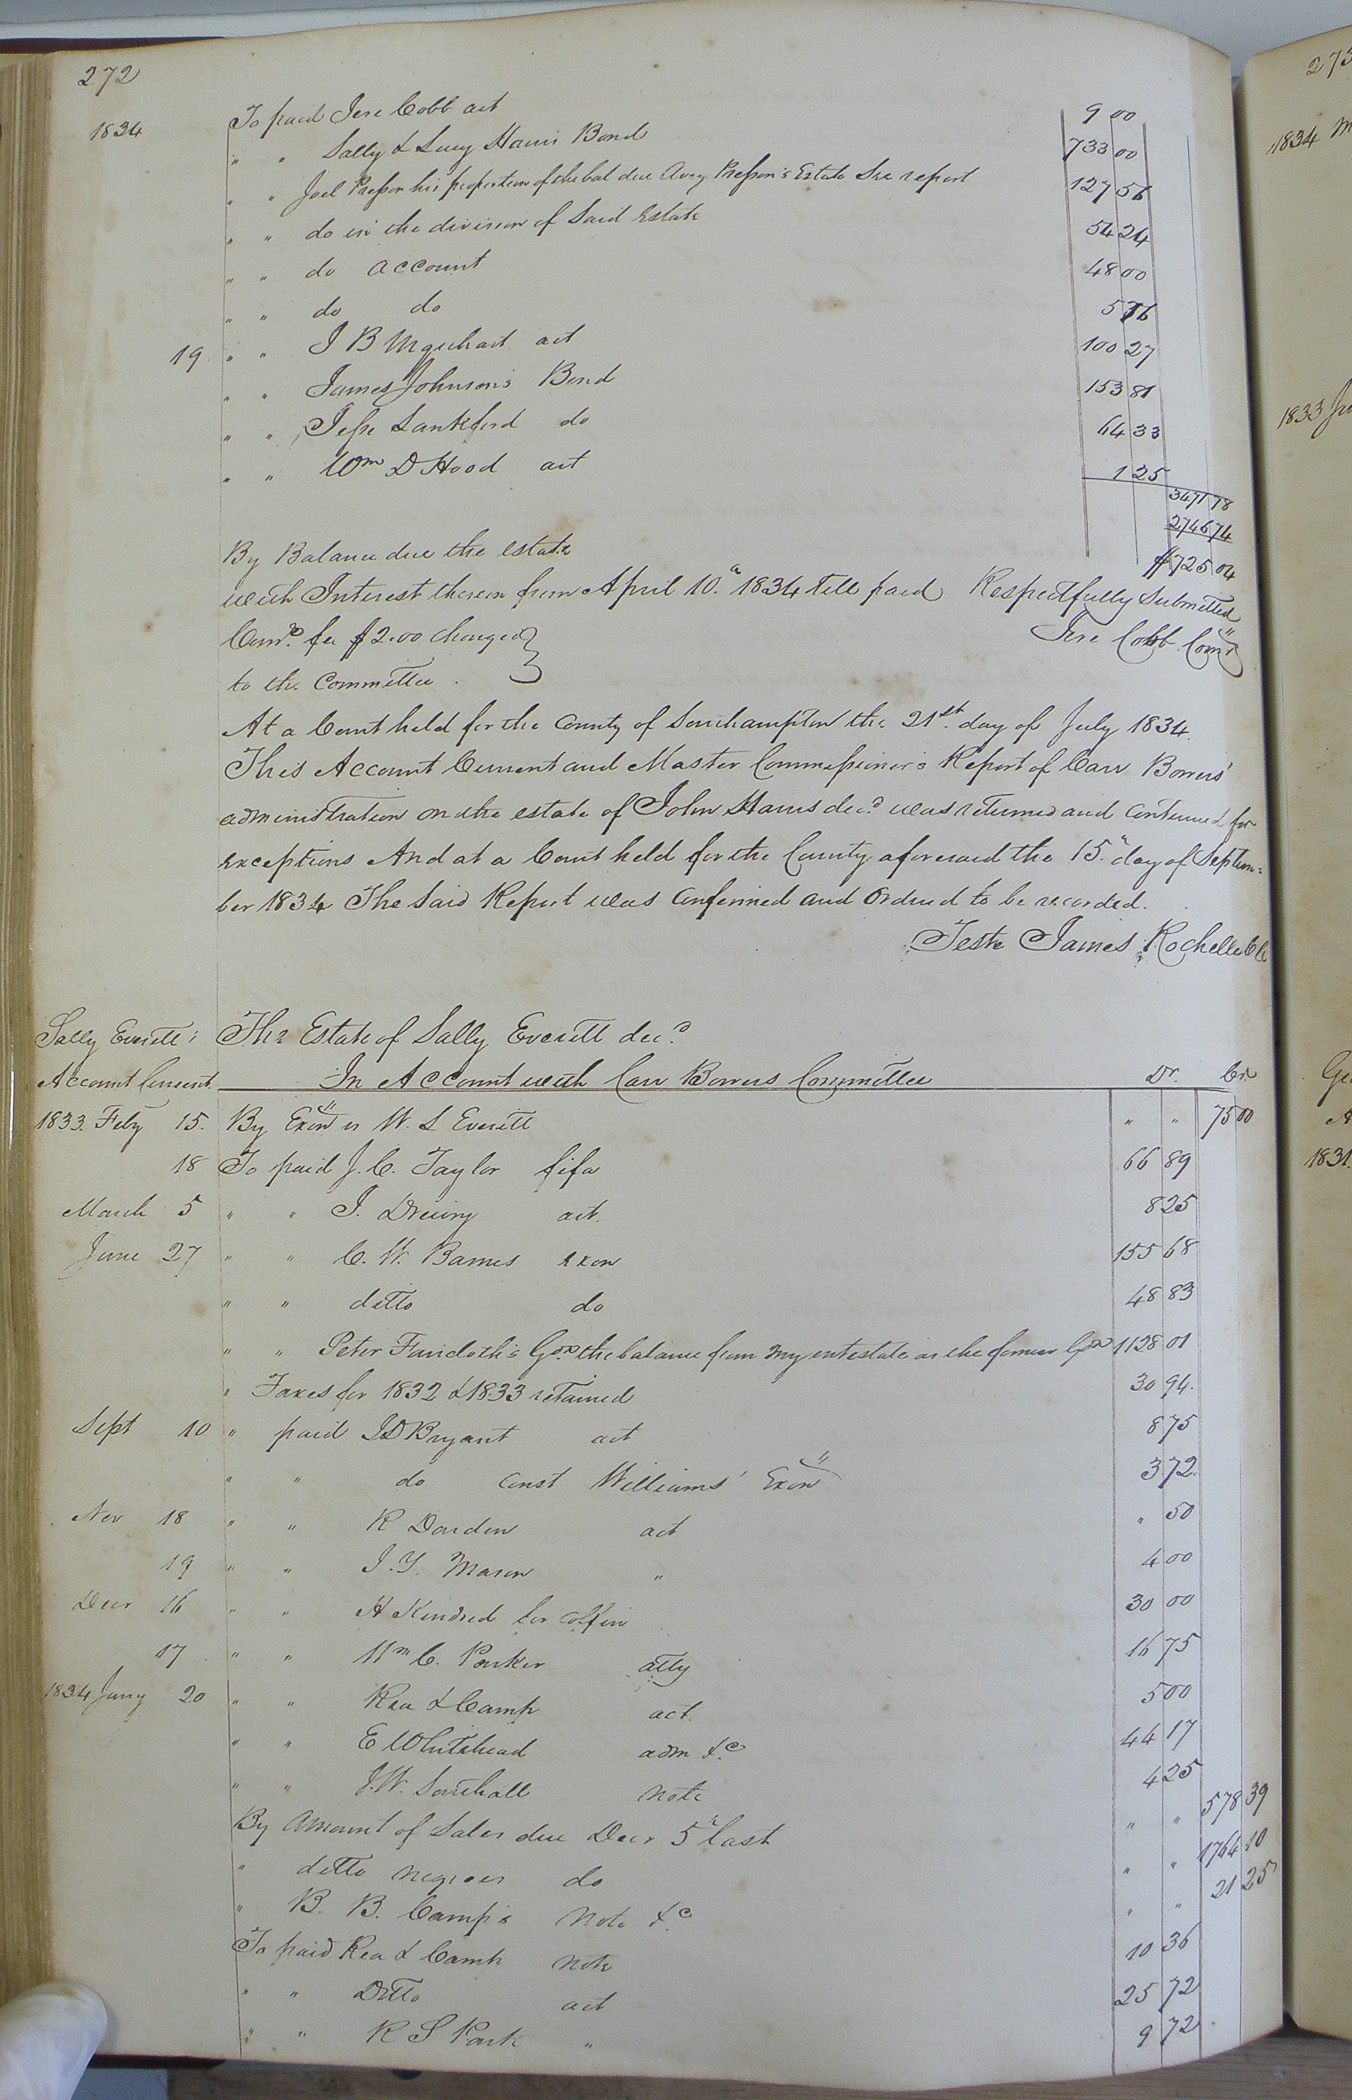 272
1834 To paid Jere Cobb act 9 00
" " Sally & Lucy Harris Bond 733 00
" " Joel Presson his proportion of the bal due Avery Presson's Estate See report 127 56
" " do in the division of Said Estate 54 24
" " do account 48 00
" " do do 5 76
19 " " J B Urquhart act 100 27
" " James Johnson's Bond 153 81
" " Jesse Lankford do 64 33
" " Wm D Hood act 1 25
3471 78
2746 74
By Balance due the estate $725 04
with Interest thereon from April 10th 1834 till paid Respectfully Submitted
Comrs fee $2.00 charged Jere Cobb Comr
to the Committee.
At a Court held for the County of Southampton the 21st day of July 1834.
This Account Current and Master Commissioner's Report of Carr Bowers'
administration on the estate of John Harris decd was returned and continued for
exceptions And at a Court held for the County aforesaid the 15th day of Septem=
ber 1834 The Said Report was confirmed and Ordered to be recorded.
Teste James Rochelle Clk
Sally Everitt's The Estate of Sally Everitt decd
Account Current In Account with Carr Bowers Committee Dr. Cr
1833 Feby 15. By Exon vs W. L Everitt " " 75 00
18 To paid J. C. Taylor fifa 66 89
March 5 " " J. Drewry act. 8 25
June 27 " " C. W. Barnes exon 155 68
" " ditto do 48 83
" " Peter Faircloth's Gdn the balance from my intestate as the former Gdn 1128 01
" Taxes for 1832 & 1833 retained 30 94.
Sept 10 " paid J D Bryant act 8 75
" " do const Williams' Exon 3 72.
Nov 18 " " R Darden act " 50
19 " " J. Y. Mason " 4 00
Decr 16 " " H Kindred for coffin 30 00
17 " " Wm C. Parker atty 16 75
1834 Jany 20 " " Rea & Camp act. 5 00
" " E Whitehead adm &c 44 17
" " J. W. Southall note 4 25
By Amount of Sales due Decr 5th last " " 578 39
" ditto negroes do " " 1764 10
" B. B. Camp's note &c " " 21 25
To paid Rea & Camp note 10 36
" " Ditto act 25 72
" " R S Park " 9 72
273
1834 M
1833 Ju
1831